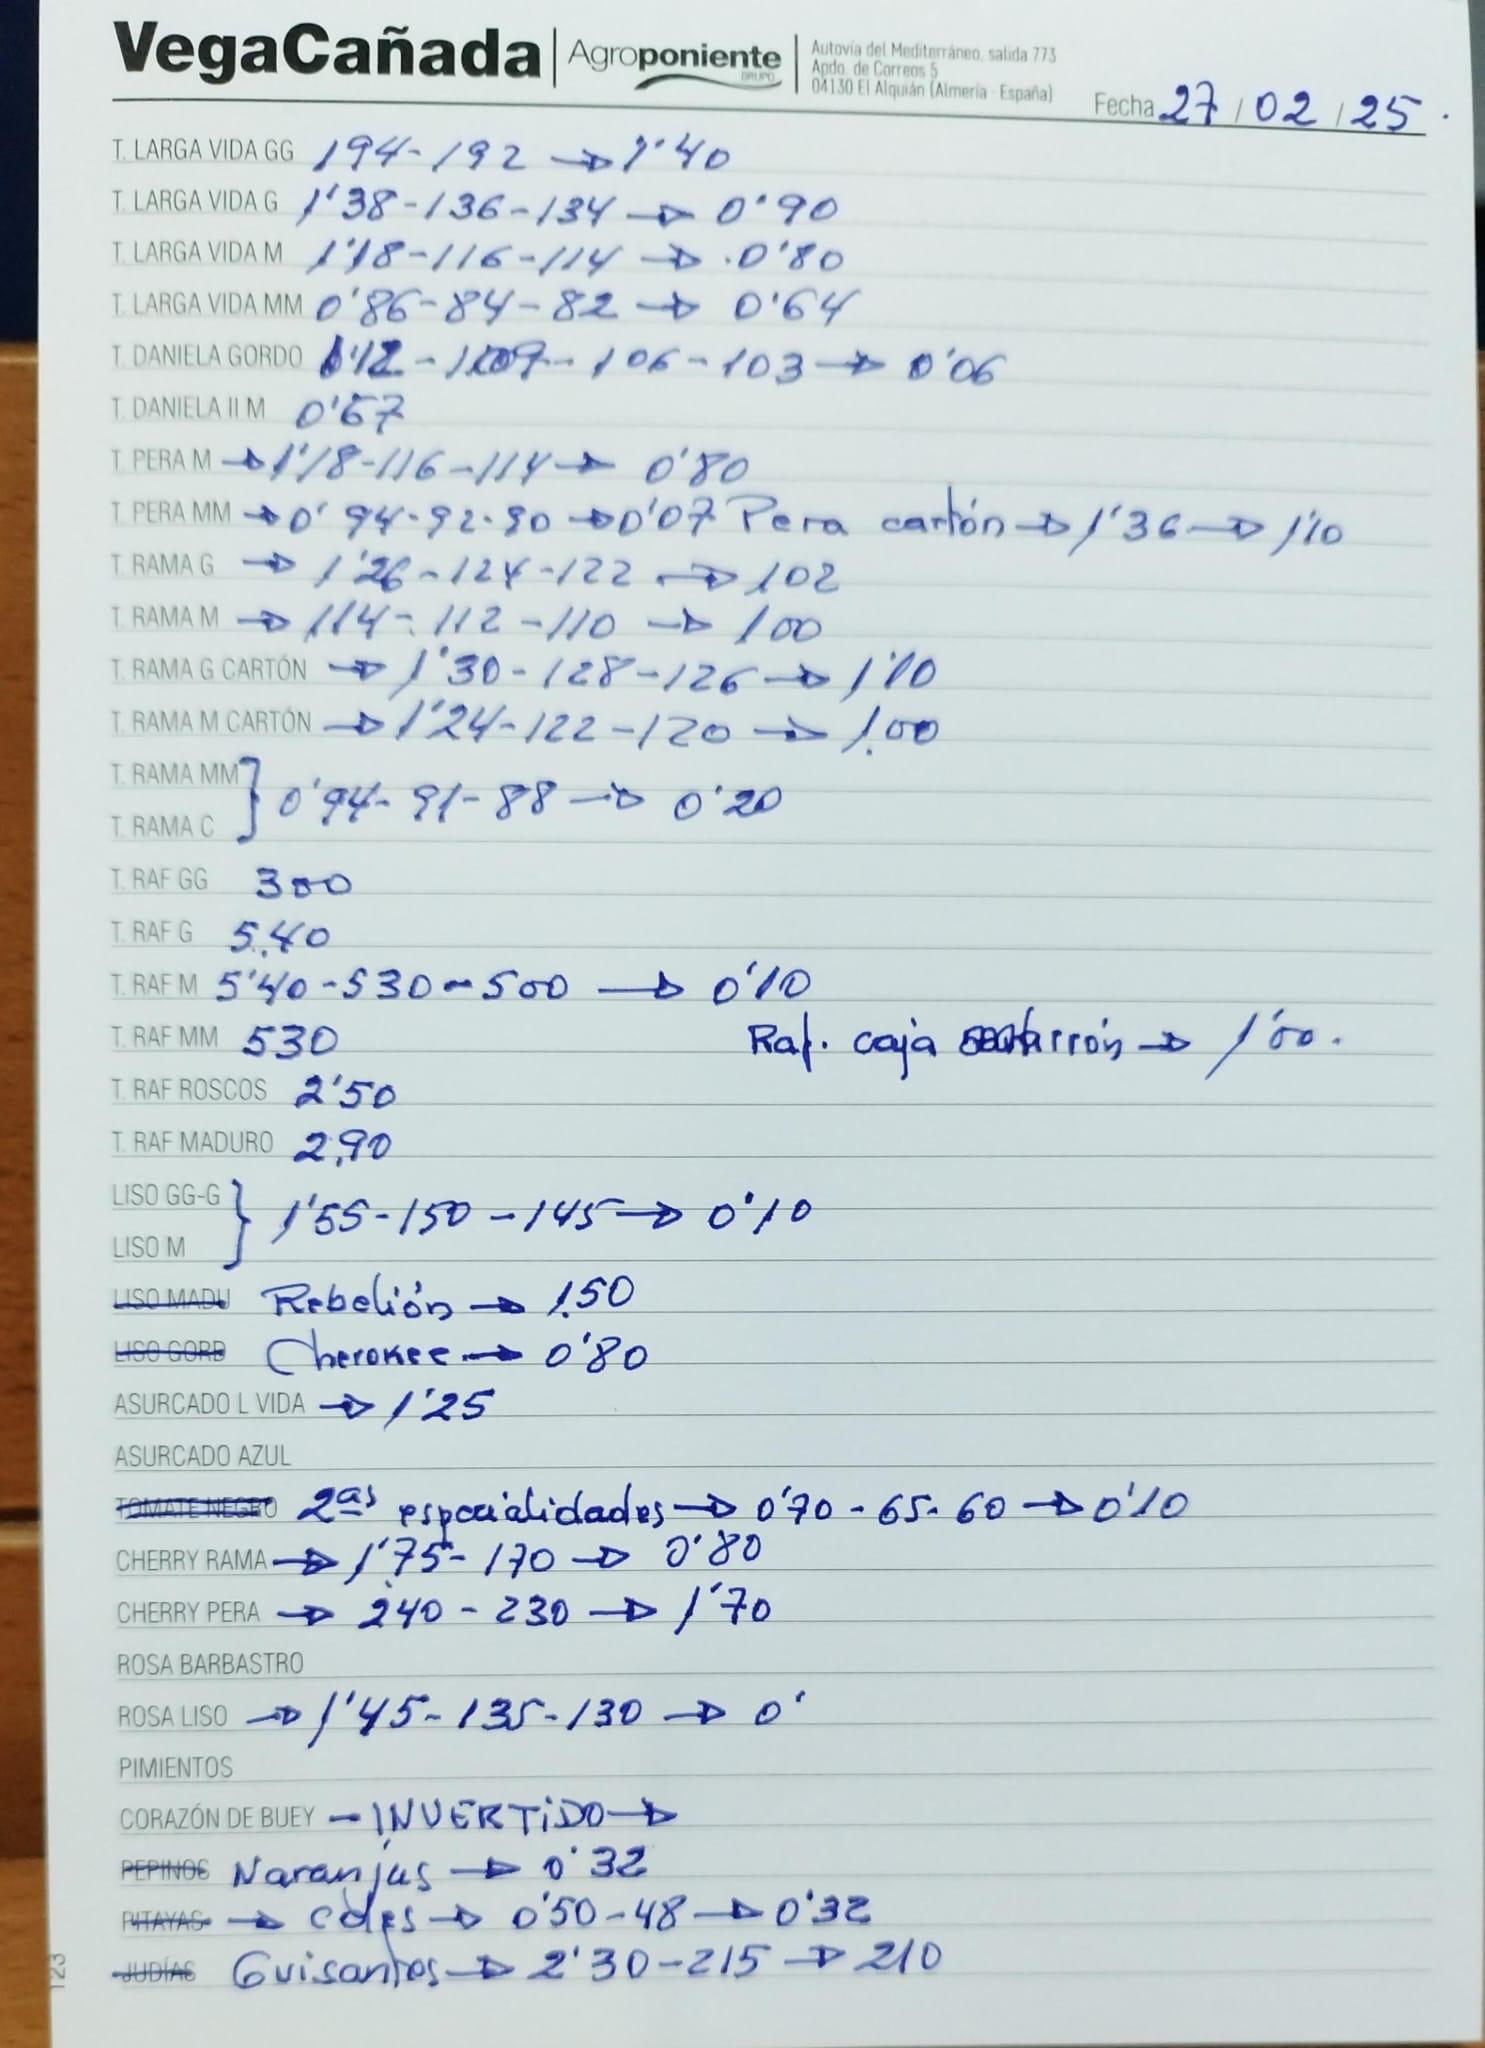 VegaCañada | Agroponiente GRUPO
Autovía del Mediterráneo, salida 773
Apdo. de Correos 5
04130 El Alquián (Almería - España)
Fecha 27 / 02 / 25.
T. LARGA VIDA GG 194-192 → 1'40
T. LARGA VIDA G 1'38-136-134 → 0'90
T. LARGA VIDA M 1'18-116-114 → 0'80
T. LARGA VIDA MM 0'86-84-82 → 0'64
T. DANIELA GORDO 1'12-1107-106-103 → 0'06
T. DANIELA II M 0'67
T. PERA M → 1'18-116-114 → 0'80
T. PERA MM → 0'94-92-90 → 0'07 Pera cartón → 1'36 → 1'10
T. RAMA G → 1'26-124-122 → 102
T. RAMA M → 114-112-110 → 100
T. RAMA G CARTÓN → 1'30-128-126 → 1'10
T. RAMA M CARTÓN → 1'24-122-120 → 1.00
T. RAMA MM
T. RAMA C } 0'94-91-88 → 0'20
T. RAF GG 300
T. RAF G 5,40
T. RAF M 5'40-530-500 → 0'10
T. RAF MM 530 Raf. caja marrón → 1'00.
T. RAF ROSCOS 2'50
T. RAF MADURO 2,90
LISO GG-G
LISO M } 1'55-150-145 → 0'10
LISO MADU Rebelión → 1.50
LISO GORD Cherokee → 0'80
ASURCADO L VIDA → 1'25
ASURCADO AZUL
TOMATE NEGRO 2as especialidades → 0'70-65-60 → 0'10
CHERRY RAMA → 1'75-170 → 0'80
CHERRY PERA → 240-230 → 1'70
ROSA BARBASTRO
ROSA LISO → 1'45-135-130 → 0'
PIMIENTOS
CORAZÓN DE BUEY - INVERTIDO →
PEPINOS Naranjas → 0'32
PITAYAS → coles → 0'50-48 → 0'32
JUDÍAS Guisantes → 2'30-215 → 210
123